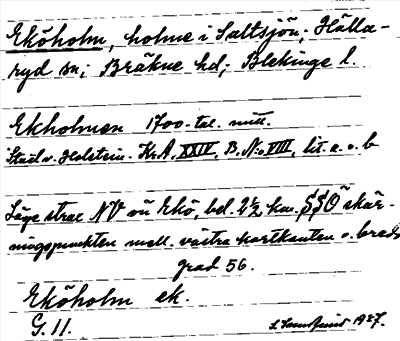 Eköholm, holme i Saltsjön; Hälla-
ryd sn; Bräkne hd; Blekinge l.
Ekholmen 1700-tal. mitt.
Stael v. Holstein. Kr. A. XXIV, B. No VIII, lit. a. o. b
Läge strax NV om Ekö, bel. 2½ km. SSO skär-
ningspunkten mell. västra kartkanten o. bredd
grad 56.
Eköholm ek.
G. 11.
1927.